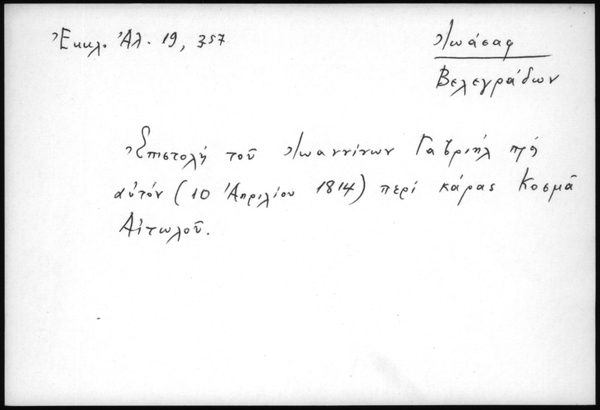 Ἐκκλ. Ἀλ. 19, 357
Ἰωάσαφ
Βελεγράδων
Ἐπιστολή τοῦ Ἰωαννίνων Γαβριήλ πρός
αὐτόν (10 Ἀπριλίου 1814) περί κάρας Κοσμᾶ
Αἰτωλοῦ.